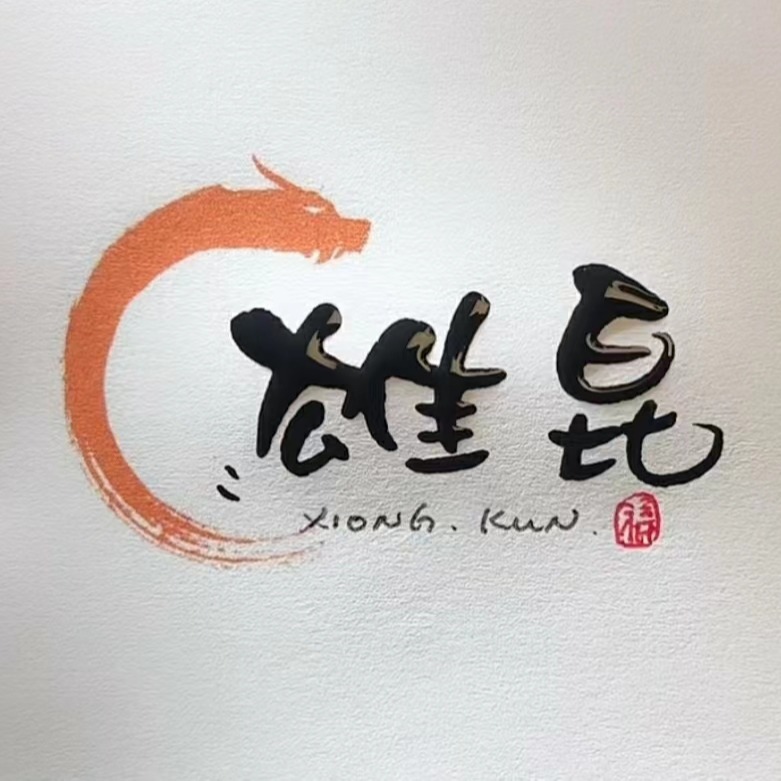 雄昆
XIONG. KUN.